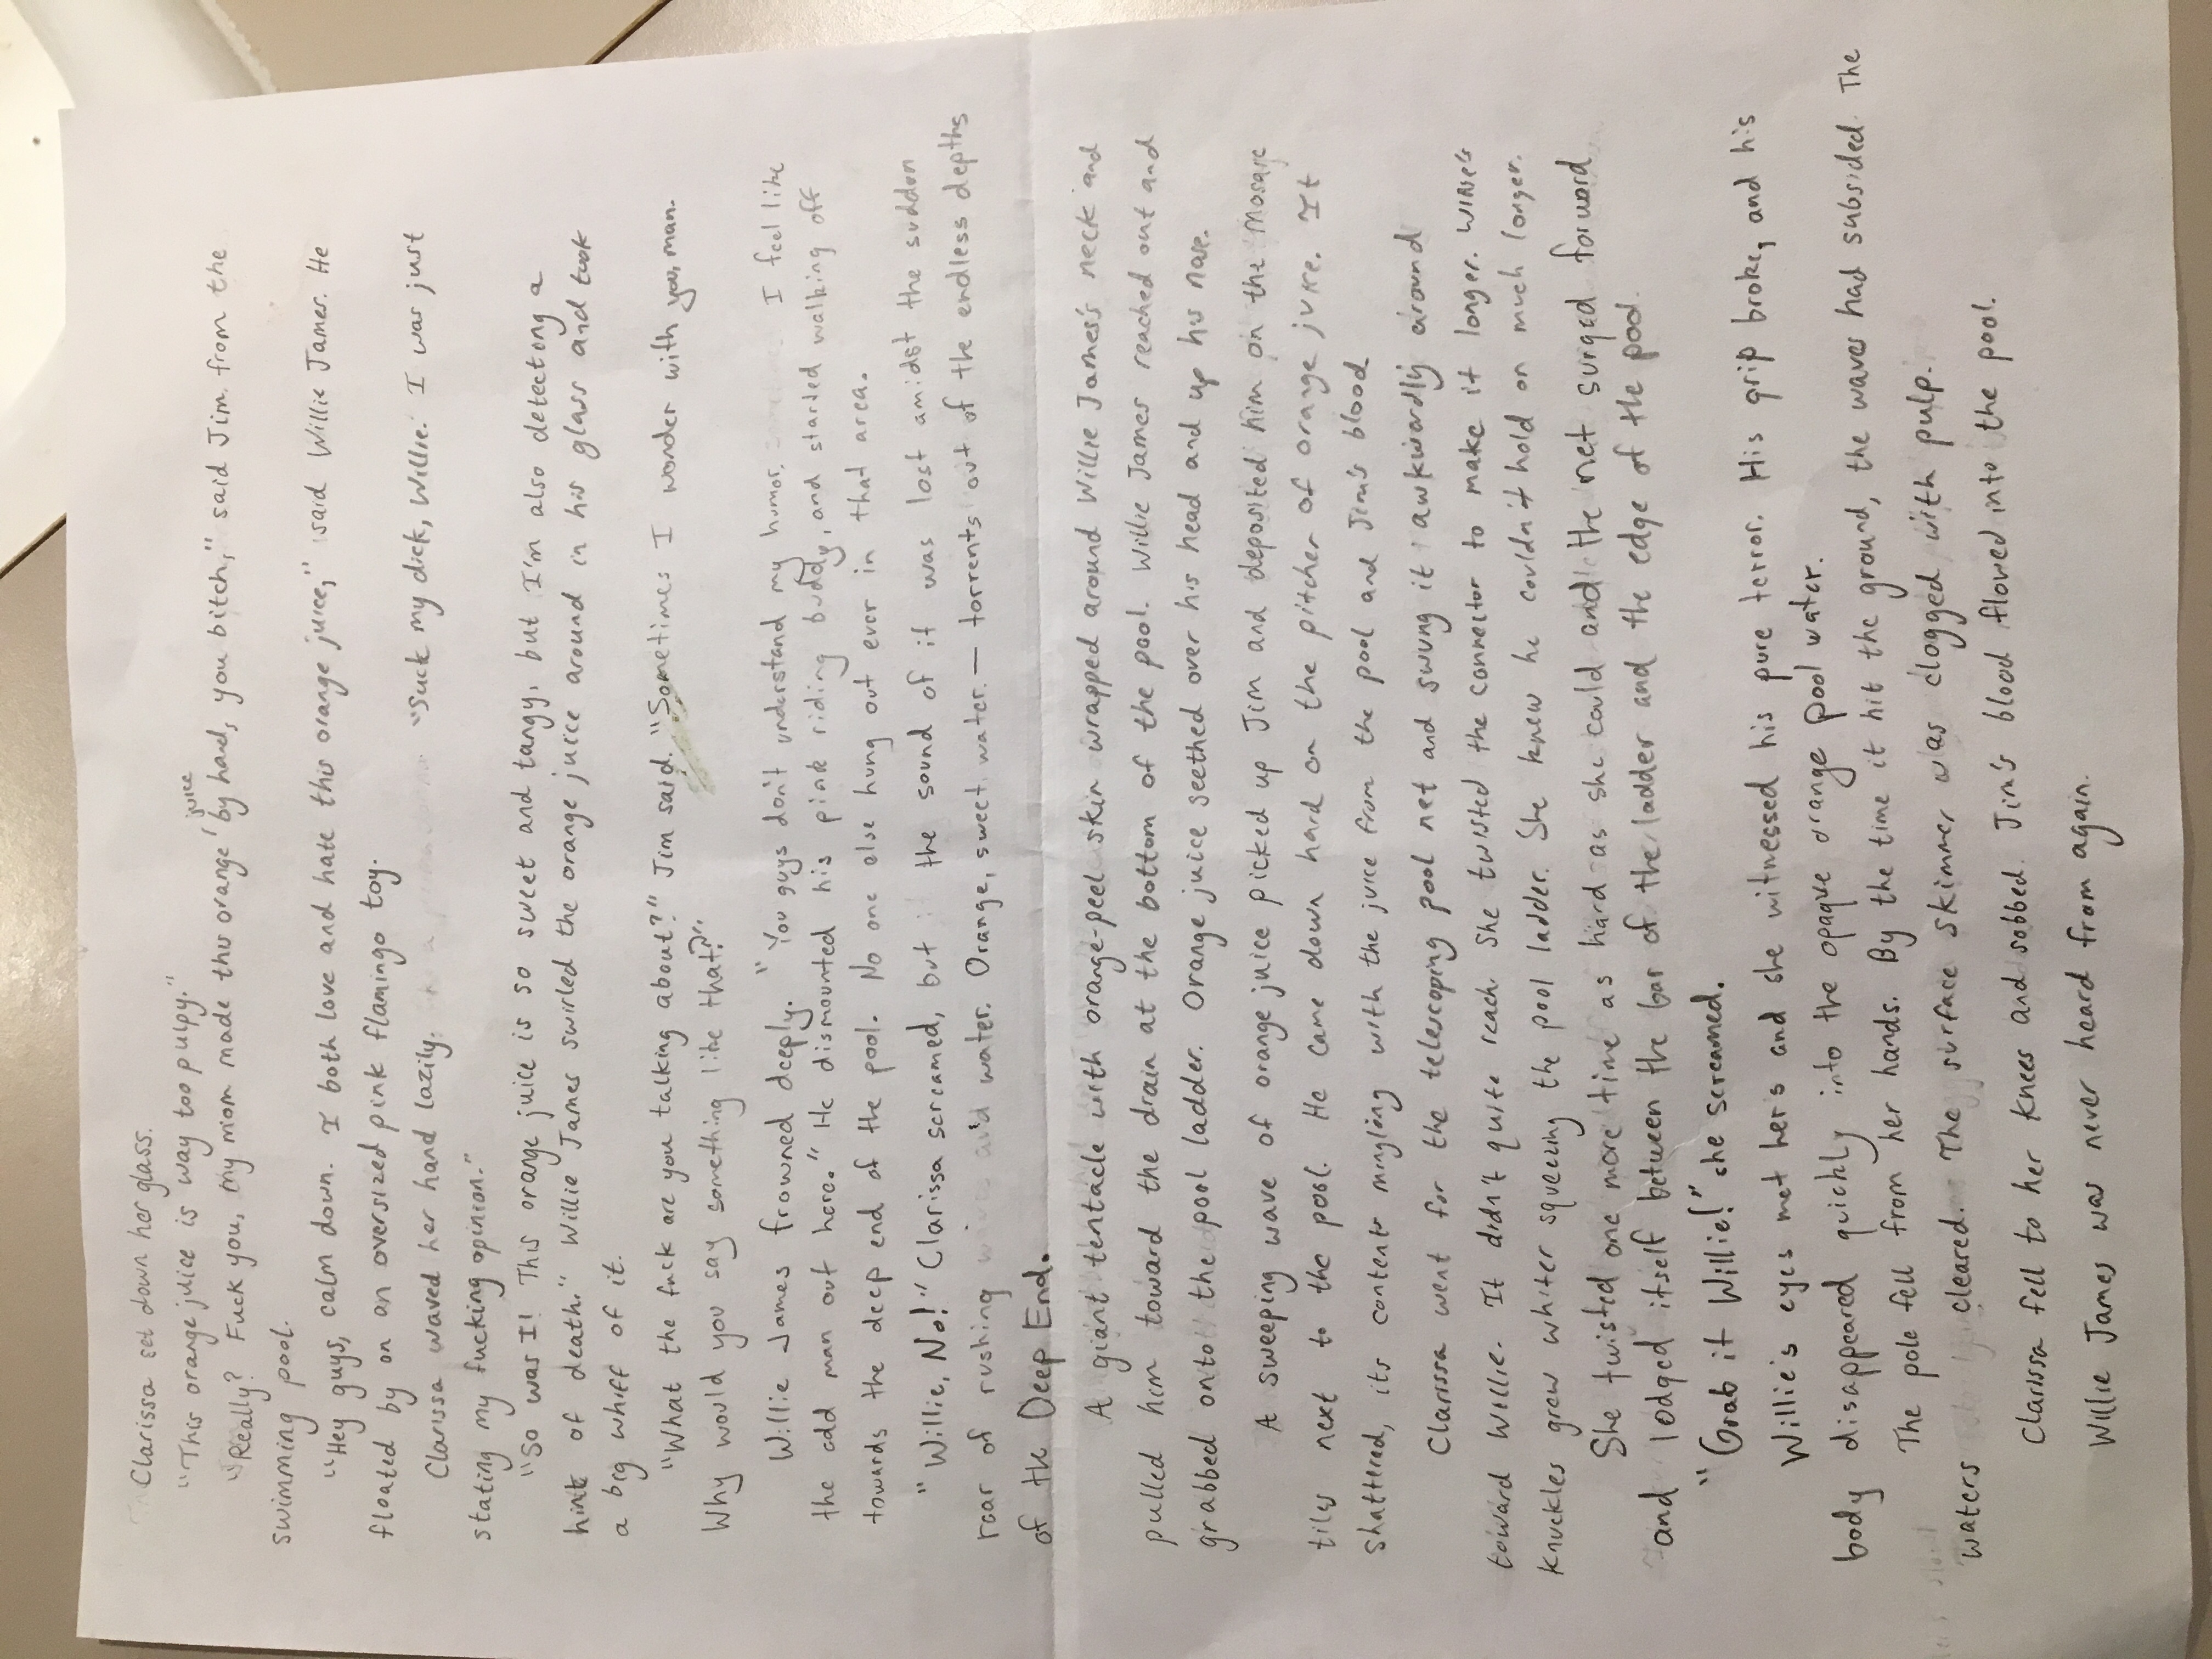 Clarissa set down her glass.
"This orange juice is way too pulpy."
"Really? Fuck you, my mom made this orange juice by hand, you bitch," said Jim from the
swimming pool.
"Hey guys, calm down. I both love and hate this orange juice," said Willie James. He
floated by on an oversized pink flamingo toy.
Clarissa waved her hand lazily. "Suck my dick, Willie. I was just
stating my fucking opinion."
"So was I! This orange juice is so sweet and tangy, but I'm also detecting a
hint of death." Willie James swirled the orange juice around in his glass and took
a big whiff of it.
"What the fuck are you talking about?" Jim said. "Sometimes I wonder with you, man.
Why would you say something like that?"
Willie James frowned deeply. "You guys don't understand my humor. I feel like
the odd man out here." He dismounted his pink riding buddy, and started walking off
towards the deep end of the pool. No one else hung out ever in that area.
"Willie, No!" Clarissa screamed, but the sound of it was lost amidst the sudden
roar of rushing water. Orange, sweet water. — torrents out of the endless depths
of the Deep End.
A giant tentacle with orange-peel skin wrapped around Willie James's neck and
pulled him toward the drain at the bottom of the pool. Willie James reached out and
grabbed onto the pool ladder. Orange juice seethed over his head and up his nose.
A sweeping wave of orange juice picked up Jim and deposited him on the mosaic
tiles next to the pool. He came down hard on the pitcher of orange juice. It
shattered, its contents mingling with the juice from the pool and Jim's blood
Clarissa went for the telescoping pool net and swung it awkwardly around
toward Willie. It didn't quite reach. She twisted the connector to make it longer. Willie's
knuckles grew whiter squeezing the pool ladder. She knew he couldn't hold on much longer.
She twisted one more time as hard as she could and the net surged forward
and lodged itself between the bar of the ladder and the edge of the pool.
"Grab it Willie!" she screamed.
Willie's eyes met hers and she witnessed his pure terror. His grip broke, and his
body disappeared quickly into the opaque orange pool water.
The pole fell from her hands. By the time it hit the ground, the waves had subsided. The
waters cleared. The surface skimmer was clogged with pulp.
Clarissa fell to her knees and sobbed. Jim's blood flowed into the pool.
Willie James was never heard from again.